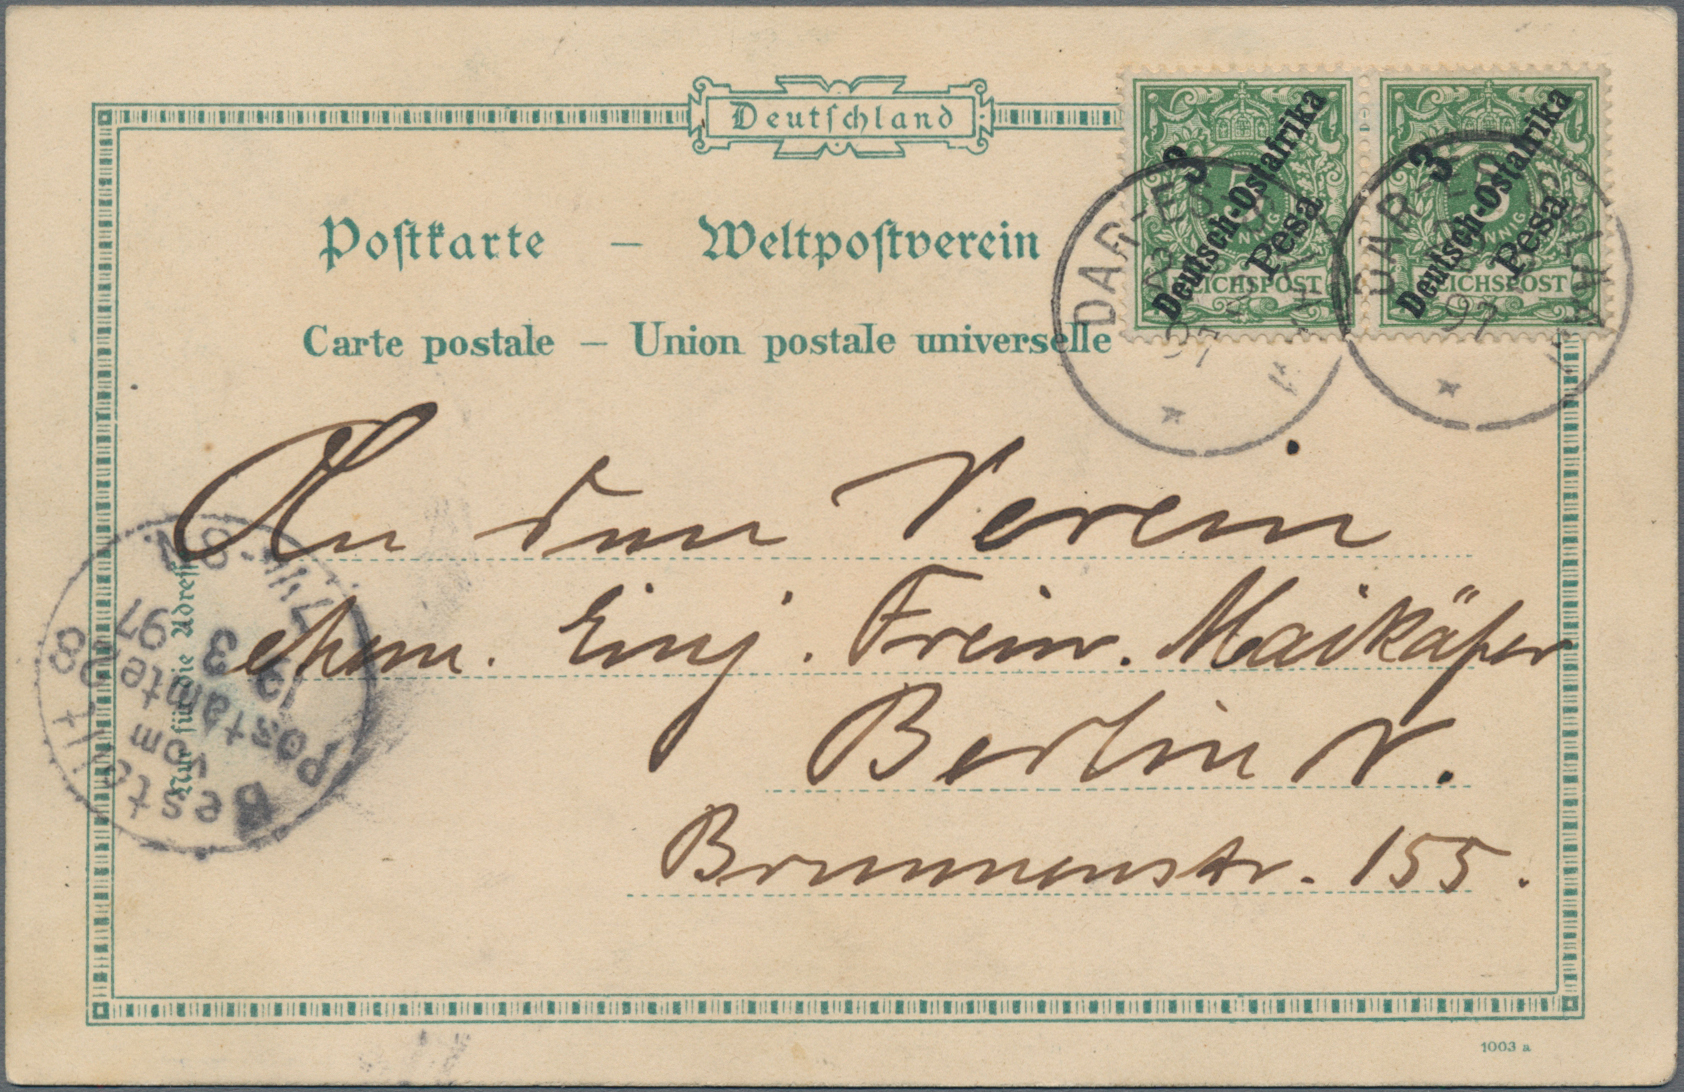 Deutschland
Postkarte — Weltpostverein
Carte postale — Union postale universelle
3
5
Deutsch-Ostafrika
Pesa
REICHSPOST
3
5
Deutsch-Ostafrika
Pesa
REICHSPOST
DAR-ES-SALAAM
97
DAR-ES-SALAAM
97
An den Verein
ehem. Einj. Freiw. Maikäfer
Berlin N.
Brunnenstr. 155.
Nur für die Adresse
Bestellt
vom
Postamte 28
19 3
97
1003 a